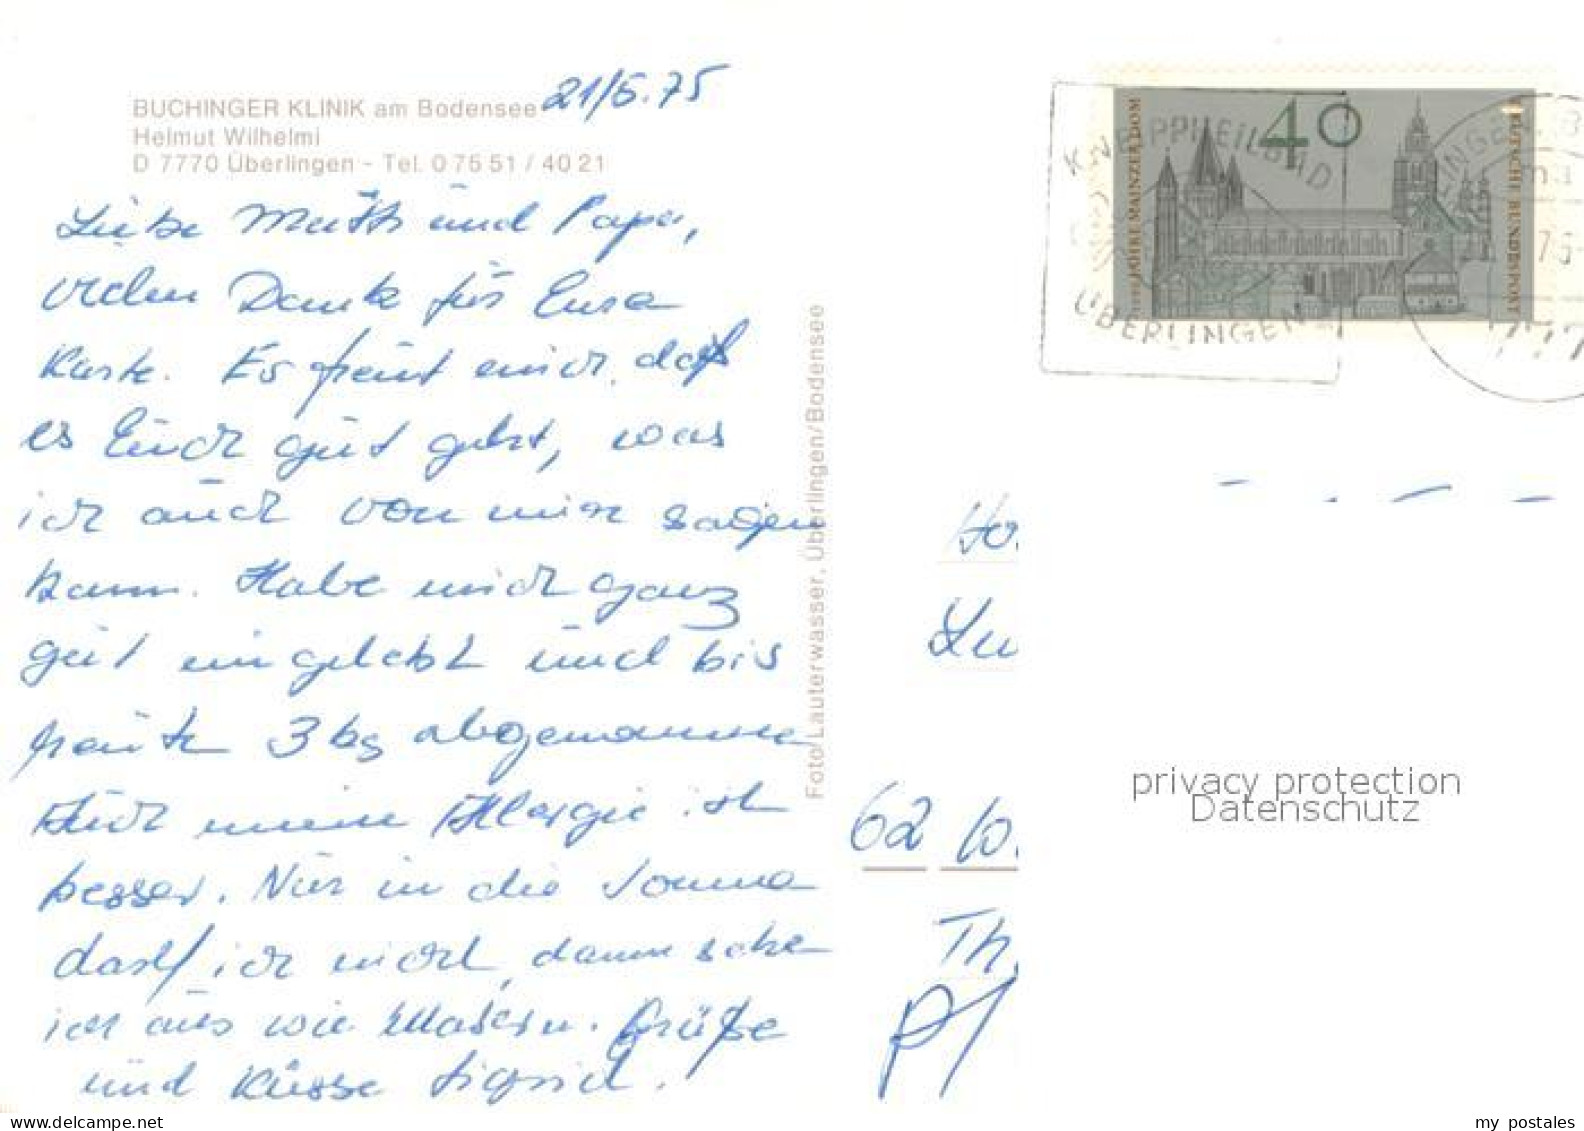 21/6.75
BUCHINGER KLINIK am Bodensee
Helmut Wilhelmi
D 7770 Überlingen - Tel. 0 75 51 / 40 21
Liebe Mutti und Papa,
vielen Dank für Eure
Karte. Es freut mich, daß
es Euch gut geht, was
ich auch von mir sagen
kann. Habe mich ganz
gut eingelebt und bis
heute 3 kg abgenommen
Auch meine Allergie ist
besser. Nur in die Sonne
darf ich nicht, dann sehe
ich aus wie Masern. Grüße
und Küsse Sigrid.
Foto Lauterwasser, Überlingen/Bodensee
40
JAHRE MAINZER DOM
DEUTSCHE BUNDESPOST
KNEIPPHEILBAD
ÜBERLINGEN
Ho
Lu
62 W
Th
Pf
privacy protection
Datenschutz
www.delcampe.net
my_postales